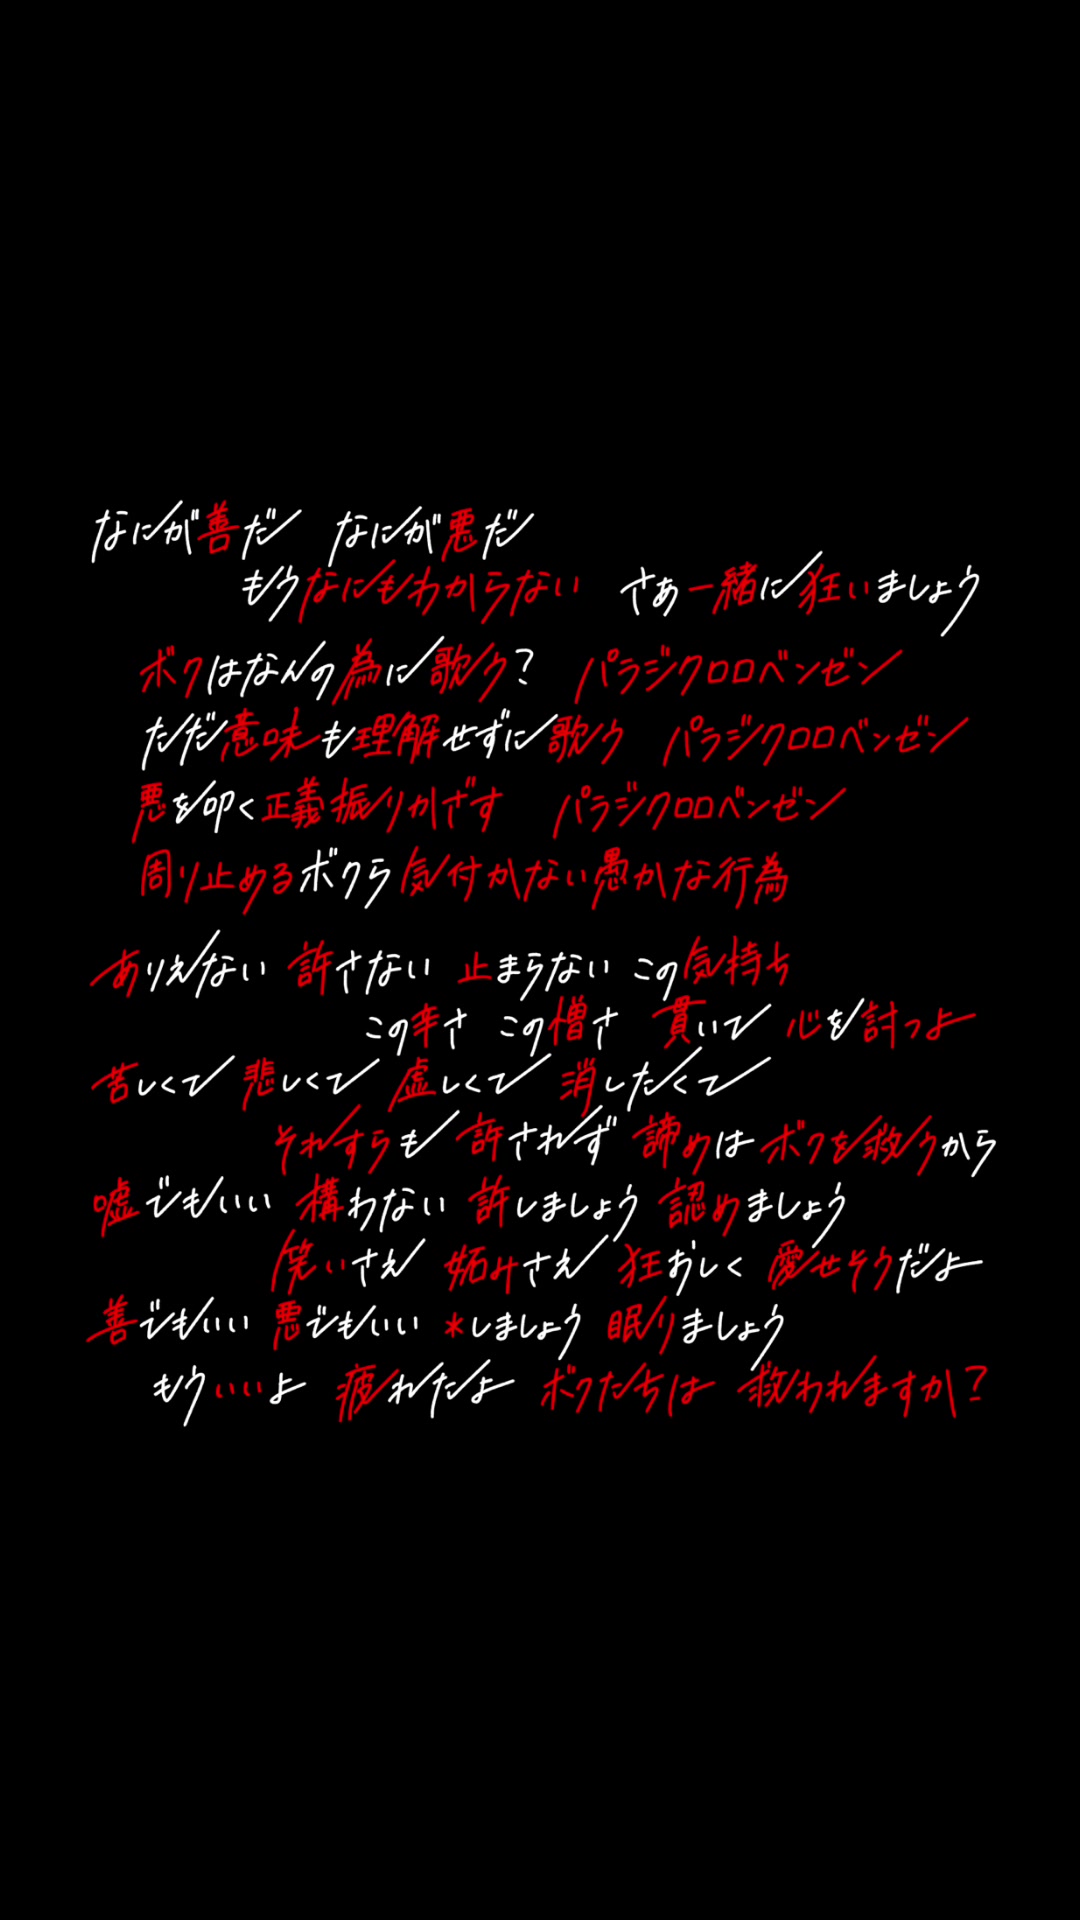 なにが善だ　なにが悪だ
もうなにもわからない　さあ一緒に狂いましょう
ボクはなんの為に歌う？　パラジクロロベンゼン
ただ意味も理解せずに歌う　パラジクロロベンゼン
悪を叩く正義振りかざす　パラジクロロベンゼン
周り止めるボクら気付かない愚かな行為
ありえない 許さない 止まらない この気持ち
この辛さ この憎さ 貫いて 心を討つよ
苦しくて 悲しくて 虚しくて 消したくて
それすらも 許されず 諦めは ボクを救うから
嘘でもいい 構わない 許しましょう 認めましょう
笑いさえ 妬みさえ 狂おしく 愛せそうだよ
善でもいい 悪でもいい *しましょう 眠りましょう
もういいよ 疲れたよ ボクたちは 救われますか？